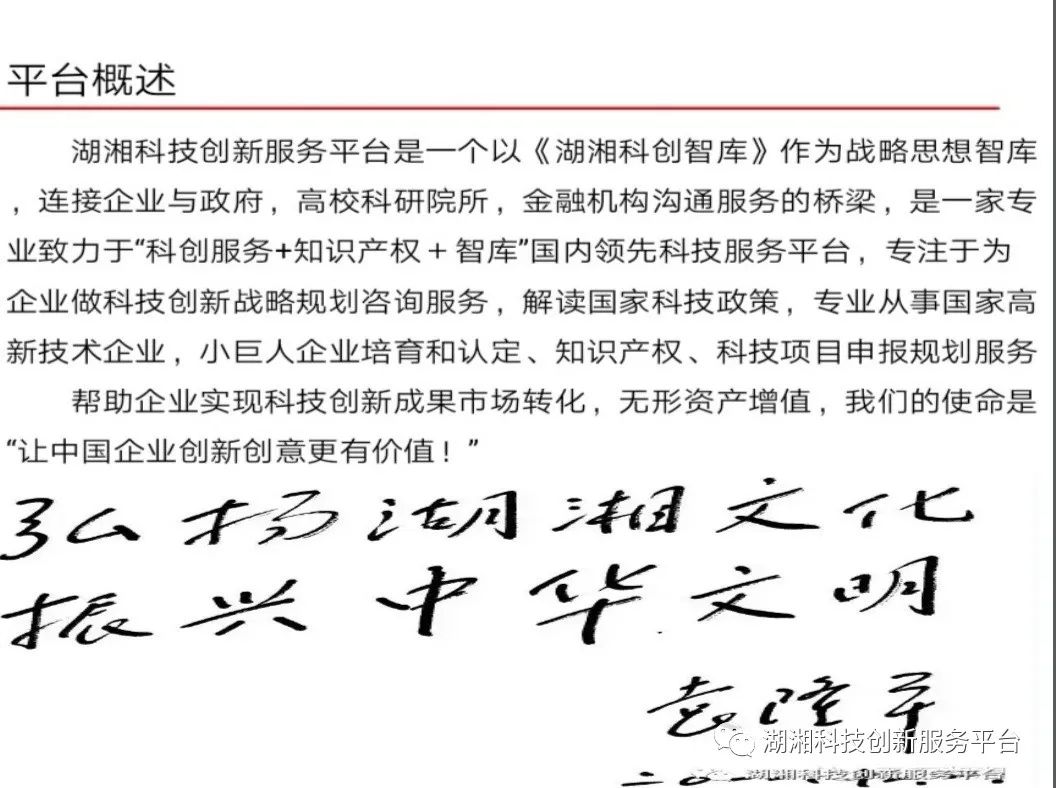 平台概述
湖湘科技创新服务平台是一个以《湖湘科创智库》作为战略思想智库
，连接企业与政府，高校科研院所，金融机构沟通服务的桥梁，是一家专
业致力于“科创服务+知识产权＋智库”国内领先科技服务平台，专注于为
企业做科技创新战略规划咨询服务，解读国家科技政策，专业从事国家高
新技术企业，小巨人企业培育和认定、知识产权、科技项目申报规划服务
帮助企业实现科技创新成果市场转化，无形资产增值，我们的使命是
“让中国企业创新创意更有价值！”
弘扬湖湘文化
振兴中华文明
袁隆平
湖湘科技创新服务平台
湖湘科技创新服务平台